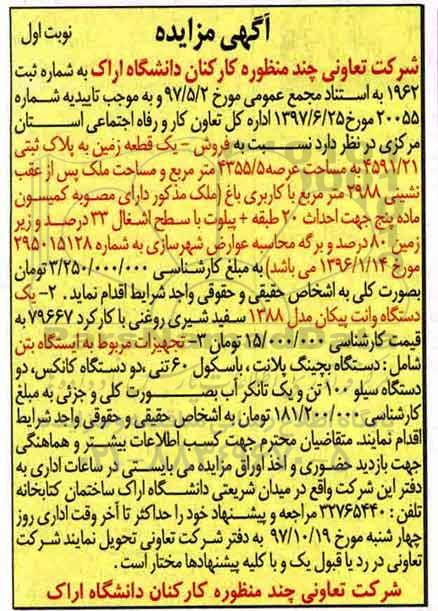 آگهی مزایده
نوبت اول
شرکت تعاونی چند منظوره کارکنان دانشگاه اراک به شماره ثبت
۱۹۶۲ به استناد مجمع عمومی مورخ ۹۷/۵/۲ و به موجب تاییدیه شماره
۲۰۰۵۵ مورخ ۱۳۹۷/۶/۲۵ اداره کل تعاون کار و رفاه اجتماعی استان
مرکزی در نظر دارد نسبت به فروش - یک قطعه زمین به پلاک ثبتی
۴۵۹۱/۲۱ به مساحت عرصه ۴۳۵۵/۵ متر مربع و مساحت ملک پس از عقب
نشینی ۲۹۸۸ متر مربع با کاربری باغ (ملک مذکور دارای مصوبه کمیسون
ماده پنج جهت احداث ۲۰ طبقه + پیلوت با سطح اشغال ۳۳ درصد و زیر
زمین ۸۰ درصد و برگه محاسبه عوارض شهرسازی به شماره ۲۹۵۰۱۵۱۲۸
مورخ ۱۳۹۶/۱/۱۴ می باشد) به مبلغ کارشناسی ۳/۲۵۰/۰۰۰/۰۰۰ تومان
بصورت کلی به اشخاص حقیقی و حقوقی واجد شرایط اقدام نماید . ۲- یک
دستگاه وانت پیکان مدل ۱۳۸۸ سفید شیری روغنی با کارکرد ۷۹۶۶۷ به
قیمت کارشناسی ۱۵/۰۰۰/۰۰۰ تومان ۳- تجهیزات مربوط به ایستگاه بتن
شامل : دستگاه بچینگ پلانت ، باسکول ۶۰ تنی ،دو دستگاه کانکس، دو
دستگاه سیلو ۱۰۰ تن و یک تانکر آب بصورت کلی و جزئی به مبلغ
کارشناسی ۱۸۱/۲۰۰/۰۰۰ تومان به اشخاص حقیقی و حقوقی واجد شرایط
اقدام نمایند. متقاضیان محترم جهت کسب اطلاعات بیشتر و هماهنگی
جهت بازدید حضوری و اخذ اوراق مزایده می بایستی در ساعات اداری به
دفتر این شرکت واقع در میدان شریعتی دانشگاه اراک ساختمان کتابخانه
تلفن : ۳۲۷۶۵۴۴۰ مراجعه و پیشنهاد خود را حداکثر تا آخر وقت اداری روز
چهار شنبه مورخ ۹۷/۱۰/۱۹ به دفتر شرکت تعاونی تحویل نمایند شرکت
تعاونی در رد یا قبول یک و یا کلیه پیشنهادها مختار است .
شرکت تعاونی چند منظوره کارکنان دانشگاه اراک